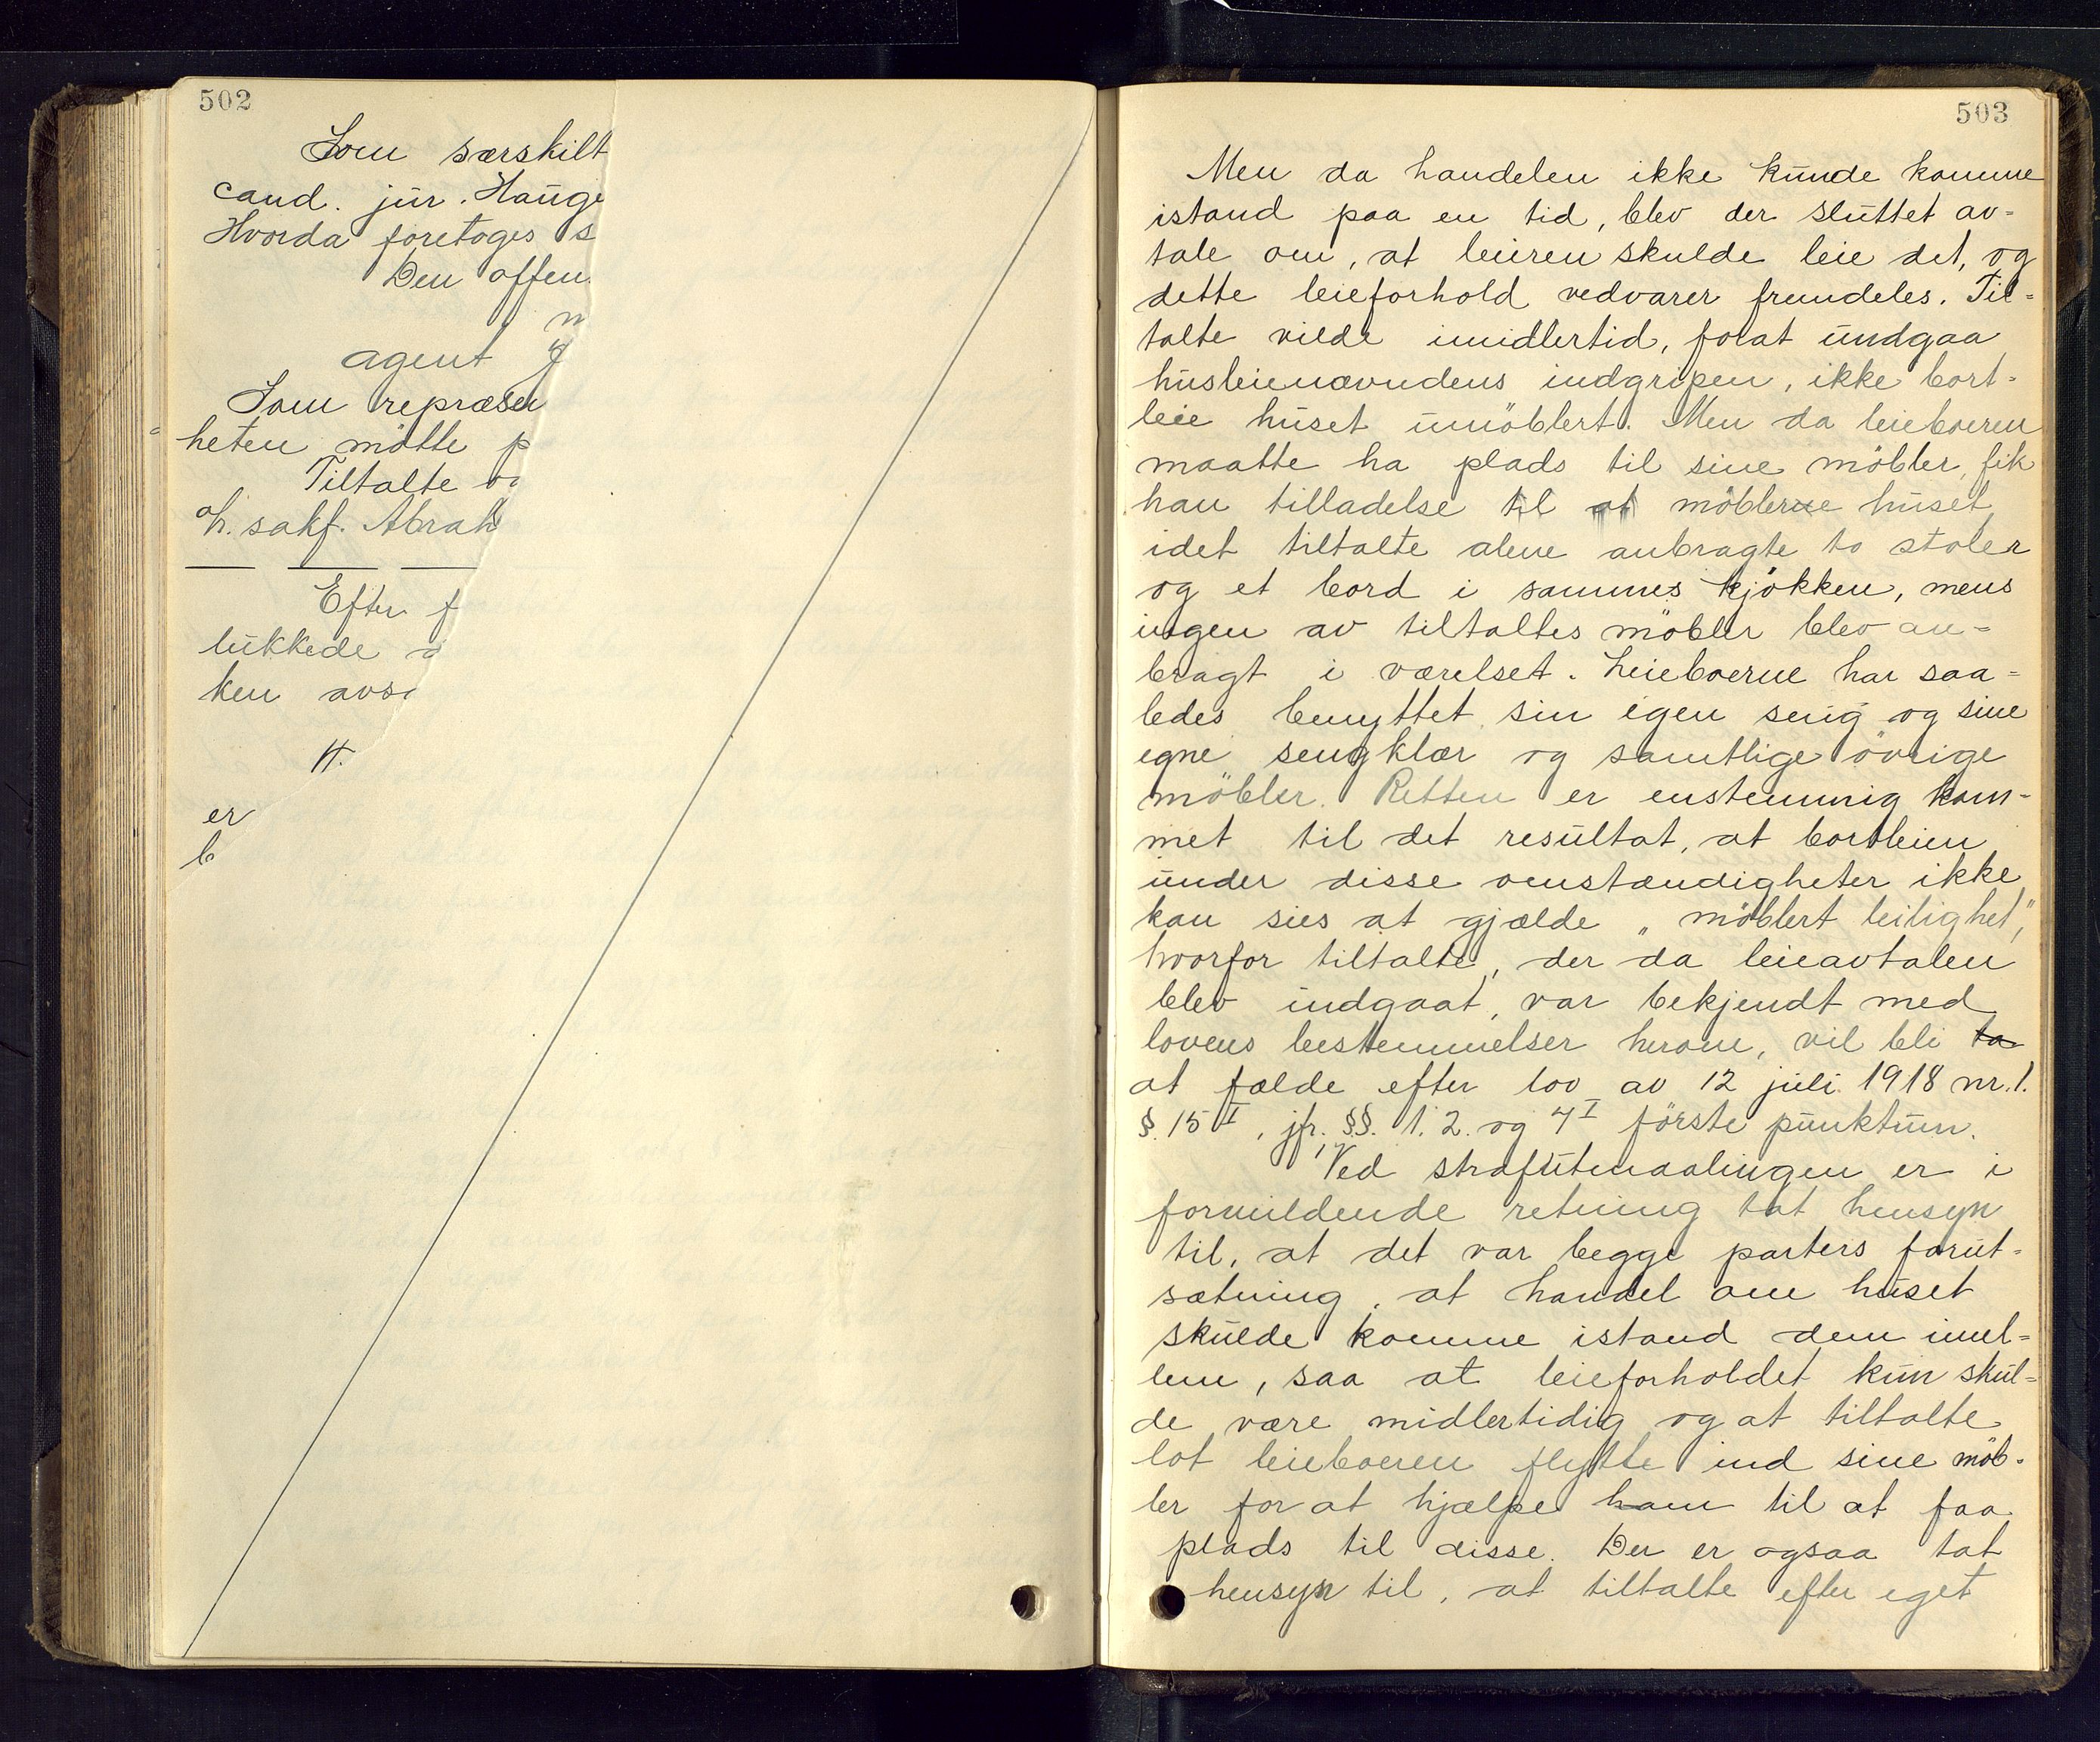 502
Som særskilt
cand. jur. Hauge
Hvorda foretoges s
Den offen
agent
Som repræsen
heten mötte p
Tiltalte og
h. sakf. Abrah
Efter f
lukkede
ken avsa
H.
er
b
503
Men da handelen ikke kunde komme
istand paa en tid, blev der sluttet av-
tale om, at leieren skulde leie det, og
dette leieforhold vedvarer fremdeles. Til-
talte vilde imidlertid, forat undgaa
husleienævndens indgripen, ikke bort-
leie huset umöblert. Men da leieboeren
maatte ha plads til sine möbler, fik
han tilladelse til at möblere huset,
idet tiltalte alene anbragte to stoler
og et bord i sammes kjökken, mens
ingen av tiltaltes möbler blev an-
bragt i værelset. Leieboerne har saa-
ledes benyttet sin egen seng og sine
egne sengklær og samtlige övrige
möbler. Retten er enstemmig kom-
met til det resultat, at bortleien
under disse omstændigheter ikke
kan sies at gjælde „möblert leilighet“,
hvorfor tiltalte, der da leieavtalen
blev indgaat, var bekjendt med
lovens bestemmelser herom, vil bli
at fælde efter lov av 12 juli 1918 nr. 1.
§. 15 I, jfr. §§. 1. 2. og 4 I förste punktum.
Ved strafutmaalingen er i
formildende retning tat hensyn
til, at det var begge parters forut-
sætning, at handel om huset
skulde komme istand dem imel-
lem, saa at leieforholdet kun skul-
de være midlertidig og at tiltalte
lot leieboeren flytte ind sine möb-
ler for at hjælpe ham til at faa
plads til disse. Der er ogsaa tat
hensyn til, at tiltalte efter eget